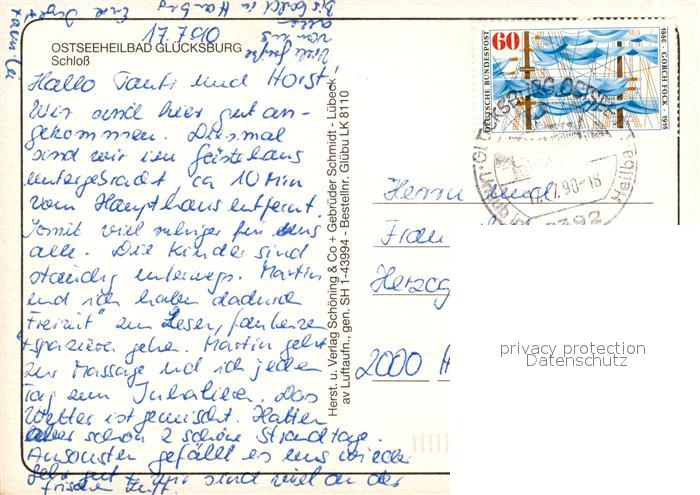 17.7.90
OSTSEEHEILBAD GLÜCKSBURG
Schloß
Hallo Tanti und Horst!
Wir sind hier gut an-
gekommen. Diesmal
sind wir im Gästehaus
untergebracht ca 10 Min
vom Haupthaus entfernt.
Somit viel ruhiger für uns
alle. Die Kinder sind
ständig unterwegs. Martin
und ich haben dadurch
"Freizeit" zum Lesen, faulenzen
+ spazieren gehen. Martin geht
zur Massage und ich jeden
Tag zum Inhalieren. Das
Wetter ist gemischt. Hatten
aber schon 2 schöne Strandtage.
Ansonsten gefällt es uns wieder
sehr gut + wir sind viel an der
frischen Luft.
Viele Grüße
von uns
allen
Bis bald in Hamburg Eure
Familie
Herst. u. Verlag Schöning & Co + Gebrüder Schmidt - Lübeck
av Luftaufn., gen. SH 1-43994 - Bestellnr. Glübu LK 8110
60
DEUTSCHE BUNDESPOST
1880 · GORCH FOCK · 1916
GLÜCKSBURG, OSTSEE
17.7.90-18
Urlaub
Heilbad
2392
Herrn und
Frau
Herzog
2000 H
privacy protection
Datenschutz